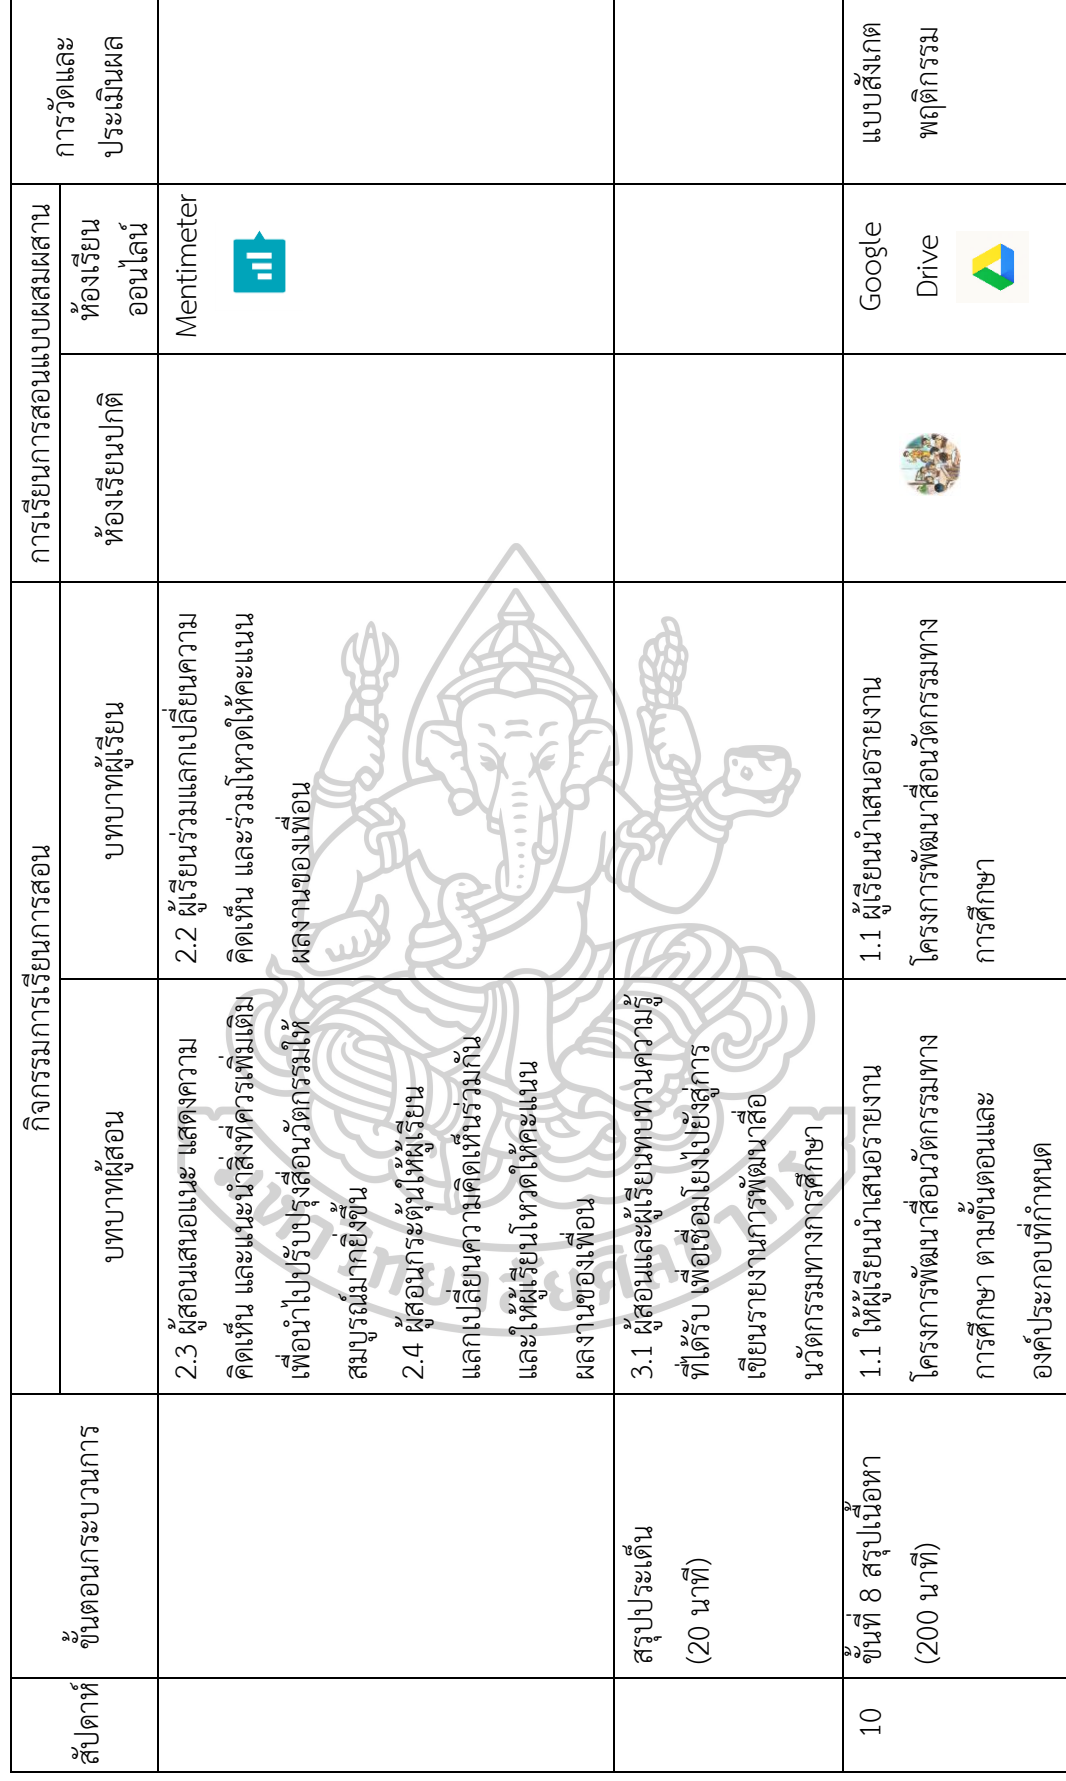 สัปดาห์
ขั้นตอนกระบวนการ
กิจกรรมการเรียนการสอน
บทบาทผู้สอน
บทบาทผู้เรียน
การเรียนการสอนแบบผสมผสาน
ห้องเรียนปกติ
ห้องเรียน
ออนไลน์
การวัดและ
ประเมินผล
2.3 ผู้สอนเสนอแนะ แสดงความ
คิดเห็น และแนะนำสิ่งที่ควรเพิ่มเติม
เพื่อนำไปปรับปรุงสื่อนวัตกรรมให้
สมบูรณ์มากยิ่งขึ้น
2.4 ผู้สอนกระตุ้นให้ผู้เรียน
แลกเปลี่ยนความคิดเห็นร่วมกัน
และให้ผู้เรียนโหวตให้คะแนน
ผลงานของเพื่อน
2.2 ผู้เรียนร่วมแลกเปลี่ยนความ
คิดเห็น และร่วมโหวตให้คะแนน
ผลงานของเพื่อน
Mentimeter
สรุปประเด็น
(20 นาที)
3.1 ผู้สอนและผู้เรียนทบทวนความรู้
ที่ได้รับ เพื่อเชื่อมโยงไปยังสู่การ
เขียนรายงานการพัฒนาสื่อ
นวัตกรรมทางการศึกษา
10
ขั้นที่ 8 สรุปเนื้อหา
(200 นาที)
1.1 ให้ผู้เรียนนำเสนอรายงาน
โครงการพัฒนาสื่อนวัตกรรมทาง
การศึกษา ตามขั้นตอนและ
องค์ประกอบที่กำหนด
1.1 ผู้เรียนนำเสนอรายงาน
โครงการพัฒนาสื่อนวัตกรรมทาง
การศึกษา
Google
Drive
แบบสังเกต
พฤติกรรม
มหาวิทยาลัยศิลปากร